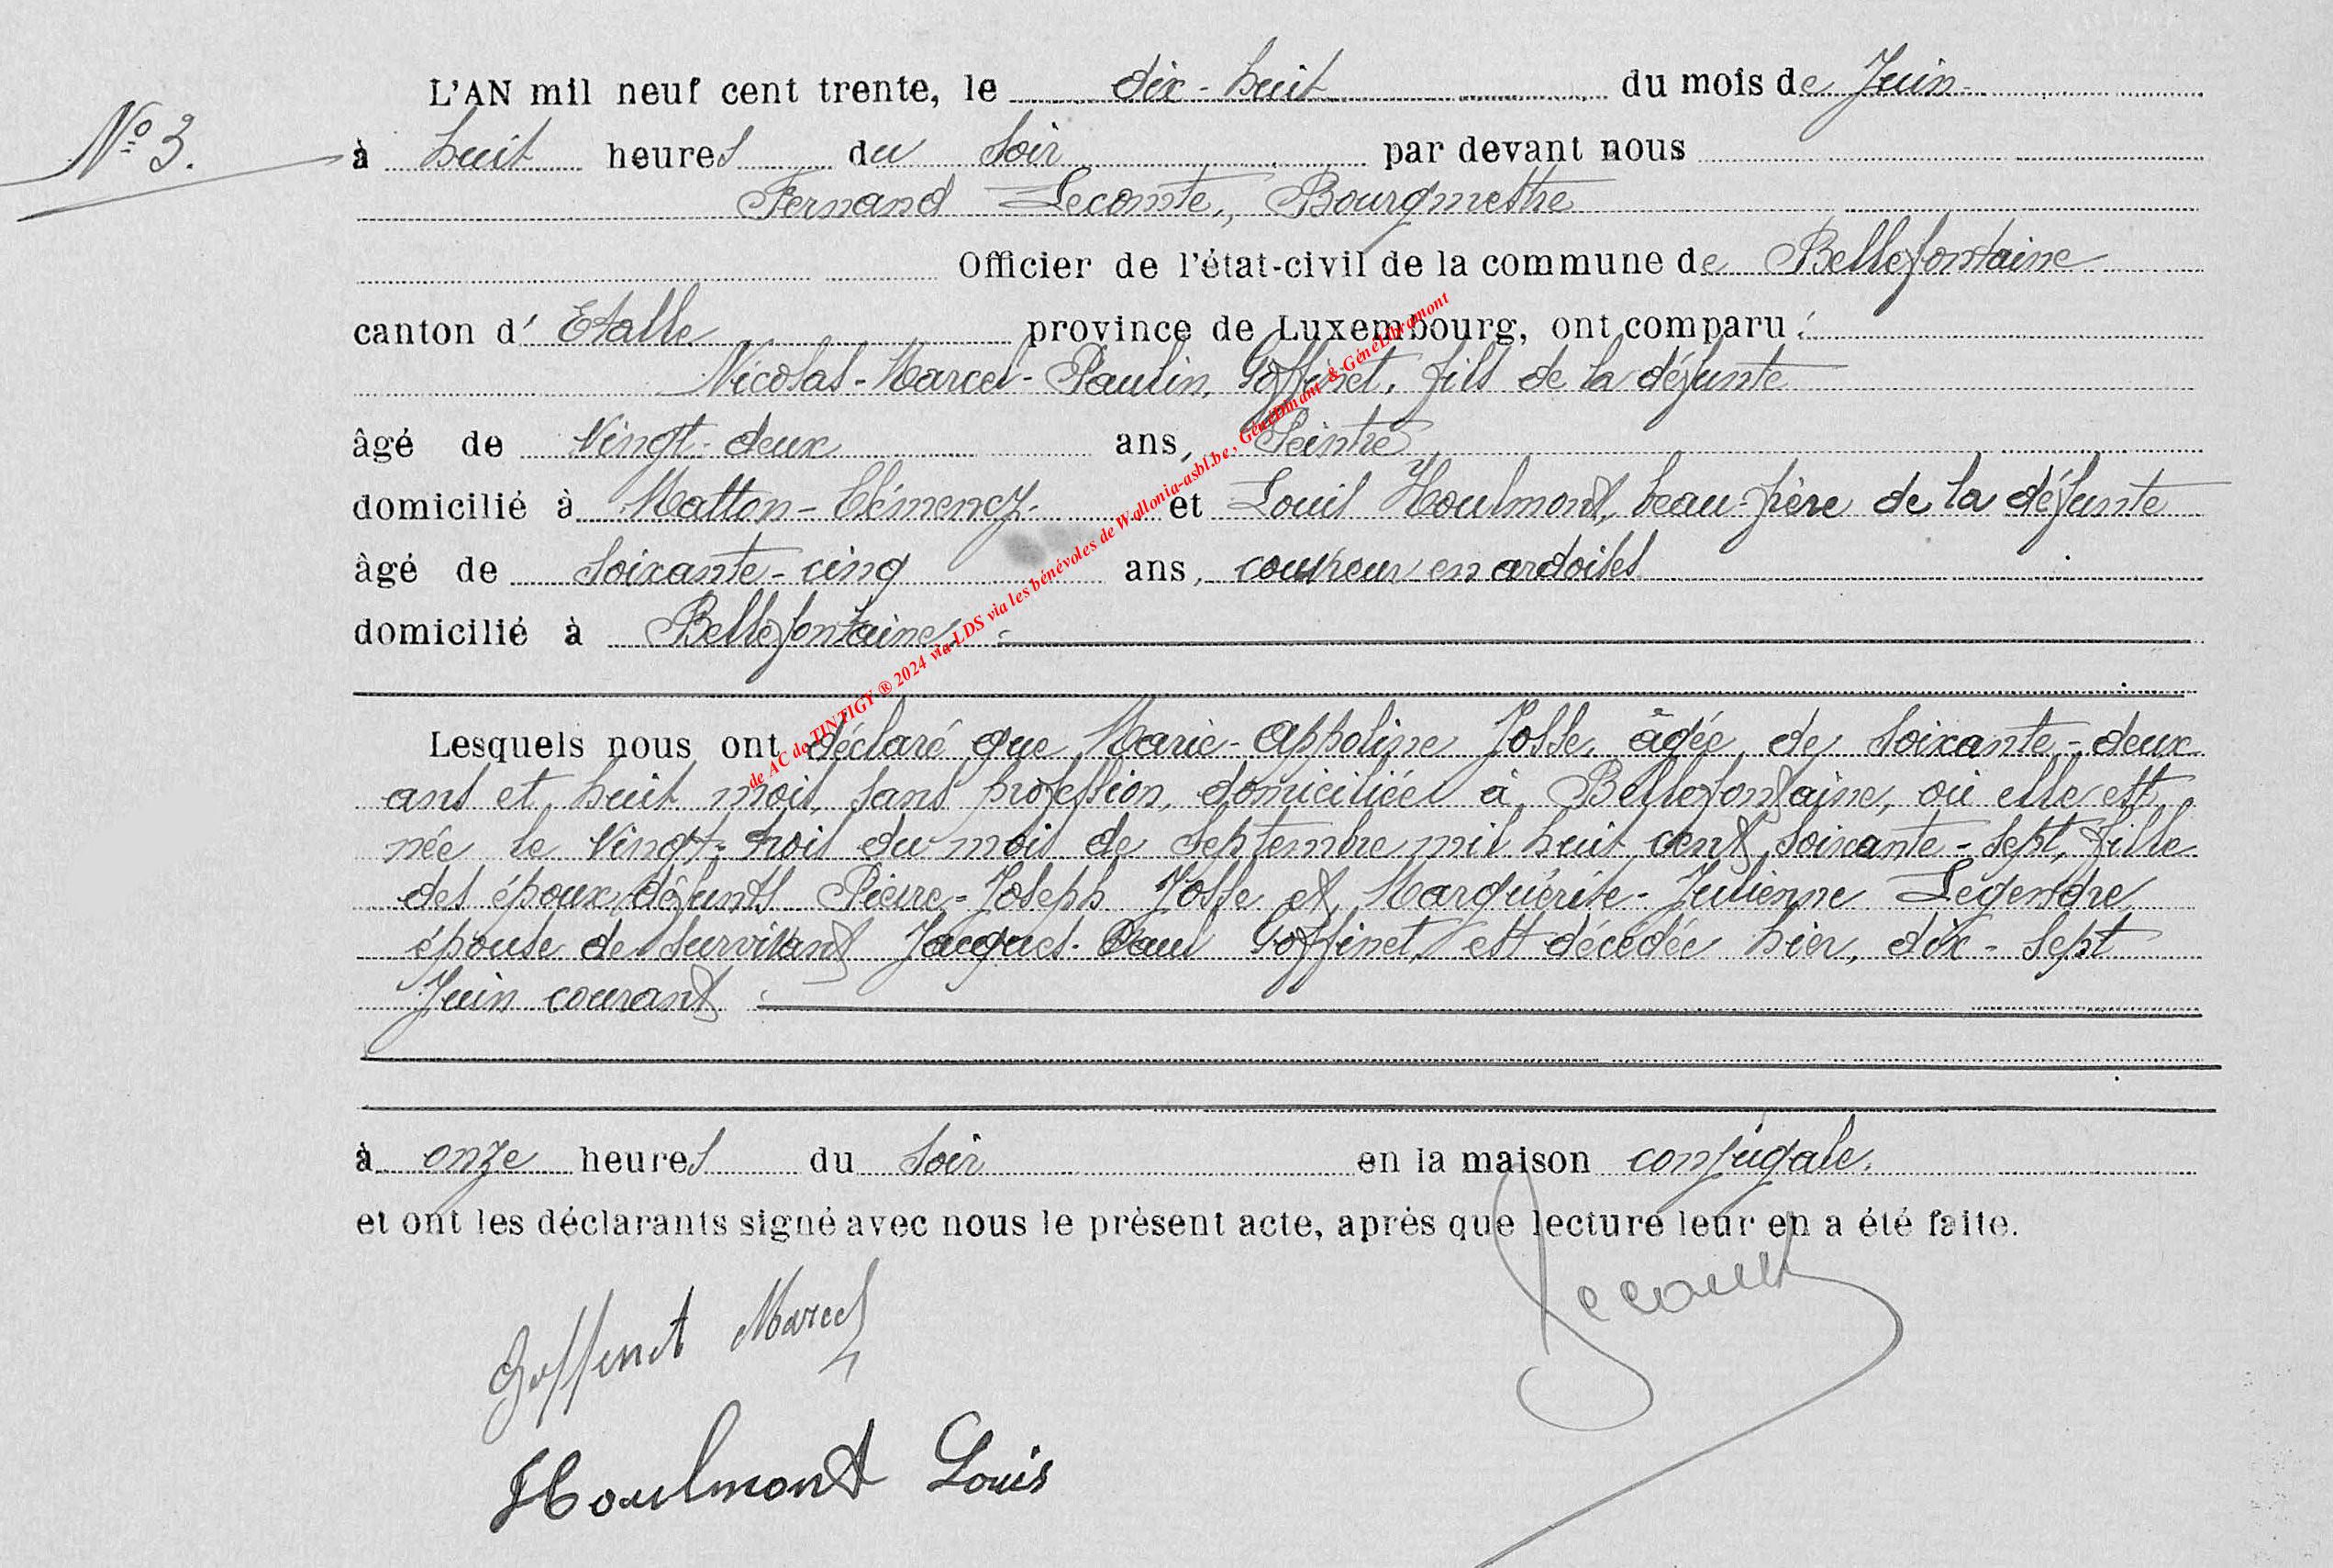 L'AN mil neuf cent trente, le dix-huit du mois de Juin
N° 3.
à huit heures du soir par devant nous
Fernand Lecomte, Bourgmestre
Officier de l'état-civil de la commune de Bellefontaine
canton d' Etalle province de Luxembourg, ont comparu :
Nicolas-Marcel-Paulin, Goffinet, fils de la défunte
âgé de vingt-deux ans, Peintre
domicilié à Matton-Clémency et Louis Houlmont, beau-frère de la défunte
âgé de soixante-cinq ans, couvreur en ardoises
domicilié à Bellefontaine
Lesquels nous ont déclaré que Marie-Appoline Josse, âgée de soixante-deux
ans et huit mois, sans profession, domiciliée à Bellefontaine, où elle est
née le vingt-trois du mois de septembre mil huit cent soixante-sept, fille
des époux défunts Pierre-Joseph Josse et Marguérite-Julienne Legendre,
épouse de survivant Jacques-Paul Goffinet, est décédée hier, dix-sept
Juin courant
à onze heures du soir en la maison conjugale.
et ont les déclarants signé avec nous le présent acte, après que lecture leur en a été faite.
Goffinet Marcel
Lecomte
Houlmont Louis
de AC de TINTIGY ® 2024 via LDS via les bénévoles de Wallonia-asbl.be, GénéDinant & GénéLibramont